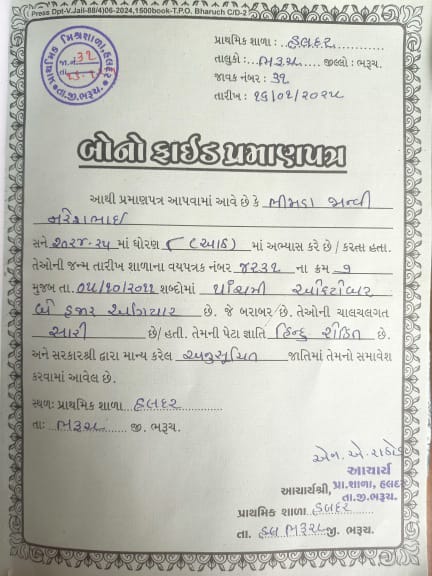 ( Press Dpt-V.Jali-88(4)06-2024,1500book-T.P.O. Bharuch C/D-2
પ્રાથમિક મિશ્રશાળા, હલદર
જા.નં. ૩૧
તા.
તા.જી.ભરૂચ.
પ્રાથમિક શાળા : હલદર
તાલુકો : ભરૂચ જીલ્લો : ભરૂચ.
જાવક નંબર : ૩૧
તારીખ : ૧૬/૦૧/૨૦૨૫
બોનોફાઈડ પ્રમાણપત્ર
આથી પ્રમાણપત્ર આપવામાં આવે છે કે ભીમડા જાનવી
નરેશભાઈ
સને ૨૦૨૪-૨૫ માં ધોરણ ૮ (આઠ) માં અભ્યાસ કરે છે / કરતા હતા.
તેઓની જન્મ તારીખ શાળાના વયપત્રક નંબર ૪૨૩૧ ના ક્રમ ૧
મુજબ તા. ૦૫/૧૦/૨૦૧૧ શબ્દોમાં પાંચમી ઓક્ટોબર
બે હજાર અગિયાર છે. જે બરાબર છે. તેઓની ચાલચલગત
સારી છે/ હતી. તેમની પેટા જાતિ હિન્દુ રોહિત છે.
અને સરકારશ્રી દ્વારા માન્ય કરેલ અનુસૂચિત જાતિમાં તેમનો સમાવેશ
કરવામાં આવેલ છે.
સ્થળ: પ્રાથમિક શાળા હલદર
તા: ભરૂચ જી. ભરૂચ.
એન.એ.રાઠોડ
આચાર્ય
આચાર્યશ્રી, પ્રા.શાળા, હલદર
તા.જી.ભરૂચ.
પ્રાથમિક શાળા હલદર
તા. ભરૂચ જી. ભરૂચ.